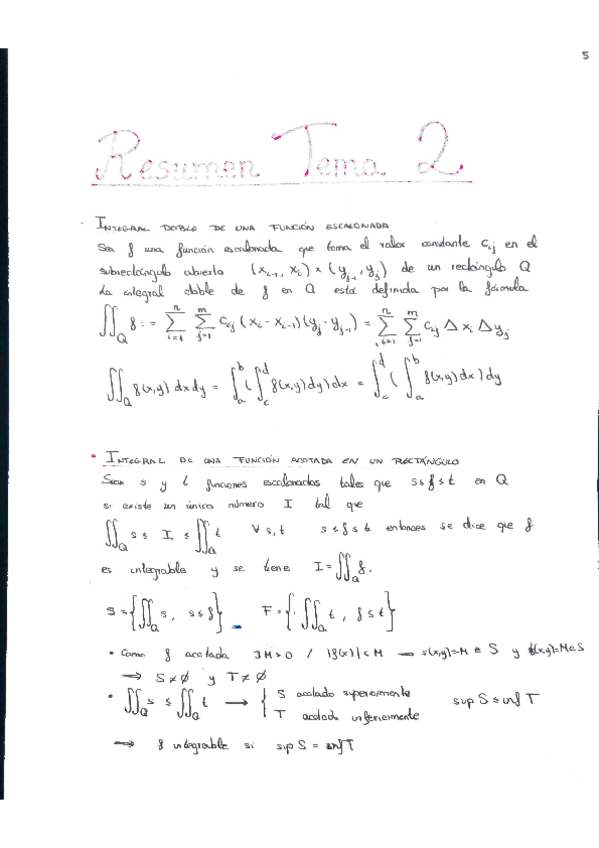 5
Resumen Tema 2
INTEGRAL DOBLE DE UNA FUNCIÓN ESCALONADA
Sea f una función escalonada que toma el valor constante Cij en el
subrectángulo abierto (xi-1, xi) × (yj-1, yj) de un rectángulo Q
La integral doble de f en Q está definida por la fórmula
∬Q f := Σ(i=1, n) Σ(j=1, m) Cij (xi - xi-1)(yj - yj-1) = Σ(i=1, n) Σ(j=1, m) Cij Δxi Δyj
∬Q f(x,y) dxdy = ∫a^b (∫c^d f(x,y) dy) dx = ∫c^d (∫a^b f(x,y) dx) dy
• INTEGRAL DE UNA FUNCIÓN ACOTADA EN UN RECTÁNGULO
Sean s y t funciones escalonadas tales que s ≤ f ≤ t en Q
si existe un único número I tal que
∬Q s ≤ I ≤ ∬Q t ∀ s, t s ≤ f ≤ t entonces se dice que f
es integrable y se tiene I = ∬Q f.
S = {∬Q s, s ≤ f} F = {∬Q t, f ≤ t}
• Como f acotada ∃M>0 / |f(x)| < M → s(x,y)=-M ∈ S y t(x,y)=M ∈ S
→ S ≠ ∅ y T ≠ ∅
• ∬Q s ≤ ∬Q t → { S acotado superiormente sup S ≤ inf T
T acotado inferiormente
→ f integrable si sup S = inf T